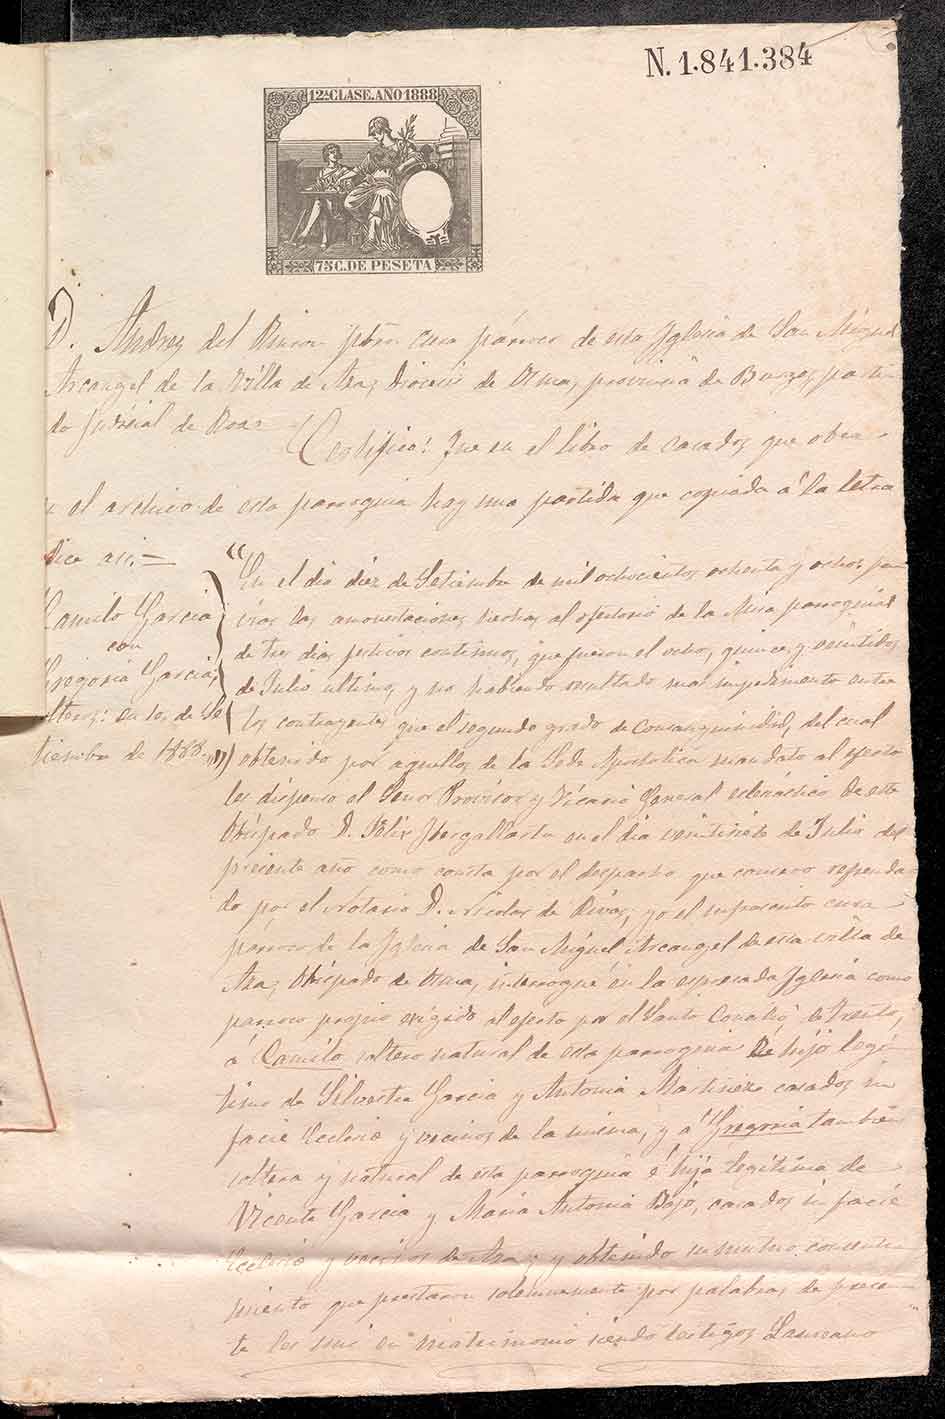 N. 1.841.384
12ª CLASE. AÑO 1888
75 C. DE PESETA
D. Andres del Rincon pbro. cura párroco de esta Iglesia de San Miguel
Arcangel de la Villa de Aza, Diocesis de Osma, provincia de Burgos, parti-
do Judicial de Roa=
Certifico: Que en el libro de casados que obra
en el archivo de esta parroquia hay una partida que copiada á la letra
dice así.=
Camilo Garcia
con
Gregoria Garcia,
solteros: en 10 de Se
tiembre de 1888.
"En el dia diez de Setiembre de mil ochocientos ochenta y ocho, pre
vias las amonestaciones hechas al ofertorio de la Misa parroquial
de tres dias festivos continuos, que fueron el ocho, quince, y veintidos
de Julio ultimo, y no habiendo resultado mas impedimento entre
los contrayentes que el segundo grado de Consanguinidad, del cual
obtenido por aquellos de la Sede Apostolica mandato al efecto
les dispensó el Señor Provisor y Vicario General eclesiástico de este
Obispado D. Felix en el dia veintisiete de Julio del
presente año como consta por el despacho que conservo refrenda
do por el Notario D. Nicolas de Rivas, yo el infrascrito cura
párroco de la Iglesia de San Miguel Arcangel de esta villa de
Aza, Obispado de Osma, interrogué en la espresada Iglesia como
parroco propio exigido al efecto por el Santo Concilio de Trento,
á Camilo soltero natural de esta parroquia é hijo legí-
timo de Silvestre Garcia y Antonia Martinez casados in
facie Eclesie y vecinos de la misma, y á Gregoria tambien
soltera y natural de esta parroquia é hija legítima de
Vicente Garcia y Maria Antonia Bajo, casados in facie
Eclesie y vecinos de Aza, y obtenido su mutuo consenti-
miento que prestaron solemnemente por palabras de presen-
te les uní en matrimonio siendo testigos Laureano